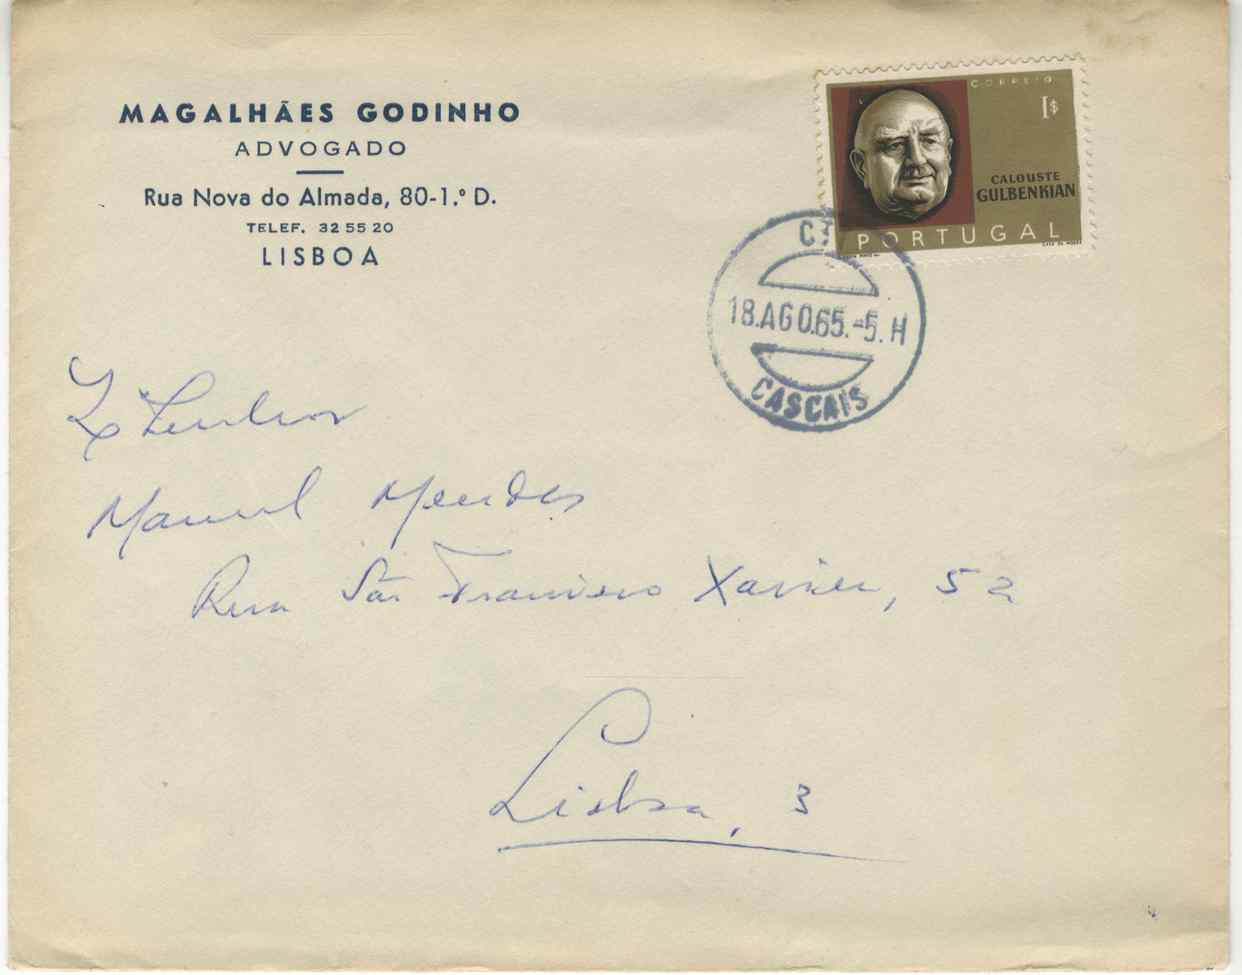 MAGALHÃES GODINHO
ADVOGADO
Rua Nova do Almada, 80-1.º D.
TELEF. 32 55 20
LISBOA
CORREIO
1$
CALOUSTE
GULBENKIAN
PORTUGAL
18.AGO.65.-5.H
CASCAIS
Manuel Mendes
Rua São Francisco Xavier, 52
Lisboa, 3